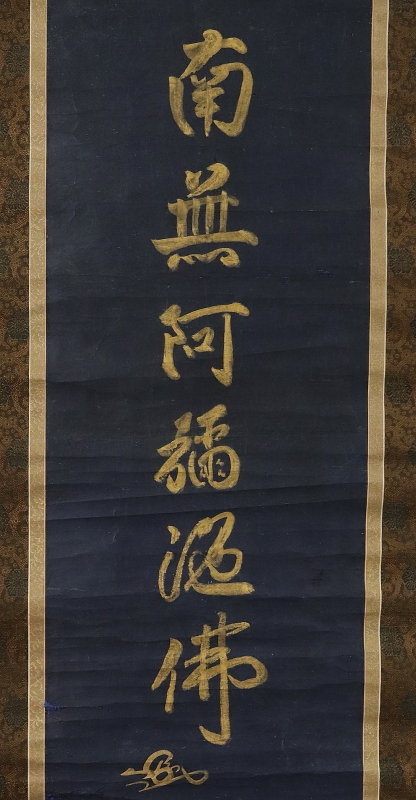 南無阿彌陁佛